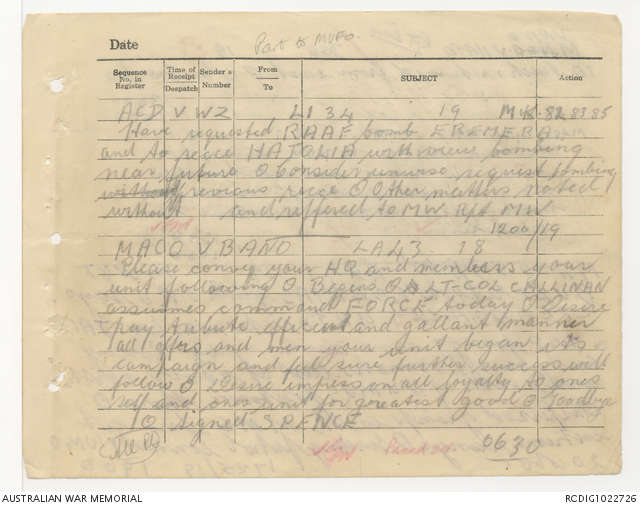 Date Part to MUFO.
Sequence No. in Register Time of Receipt Despatch Sender's Number From To SUBJECT Action
AED V WZ L134 19 82 83 85
Have requested RAAF bomb EREMERA
and to recce HATOLIA with view bombing
near future O Consider unwise request bombing
without previous recce O Other matters noted
without and reffered to MW
1200/19
MACO V BANO LA43 18
Please convey your HQ and members your
unit following O Begins O LT-COL CALLINAN
assumes command FORCE today O Desire
pay tribute efficient and gallant manner
all offrs and men your unit began its
campaign and feel sure further success will
follow O Desire impress on all loyalty to ones
self and ones unit for greatest good O Goodbye
O Signed SPENCE
0630
AUSTRALIAN WAR MEMORIAL RCDIG1022726